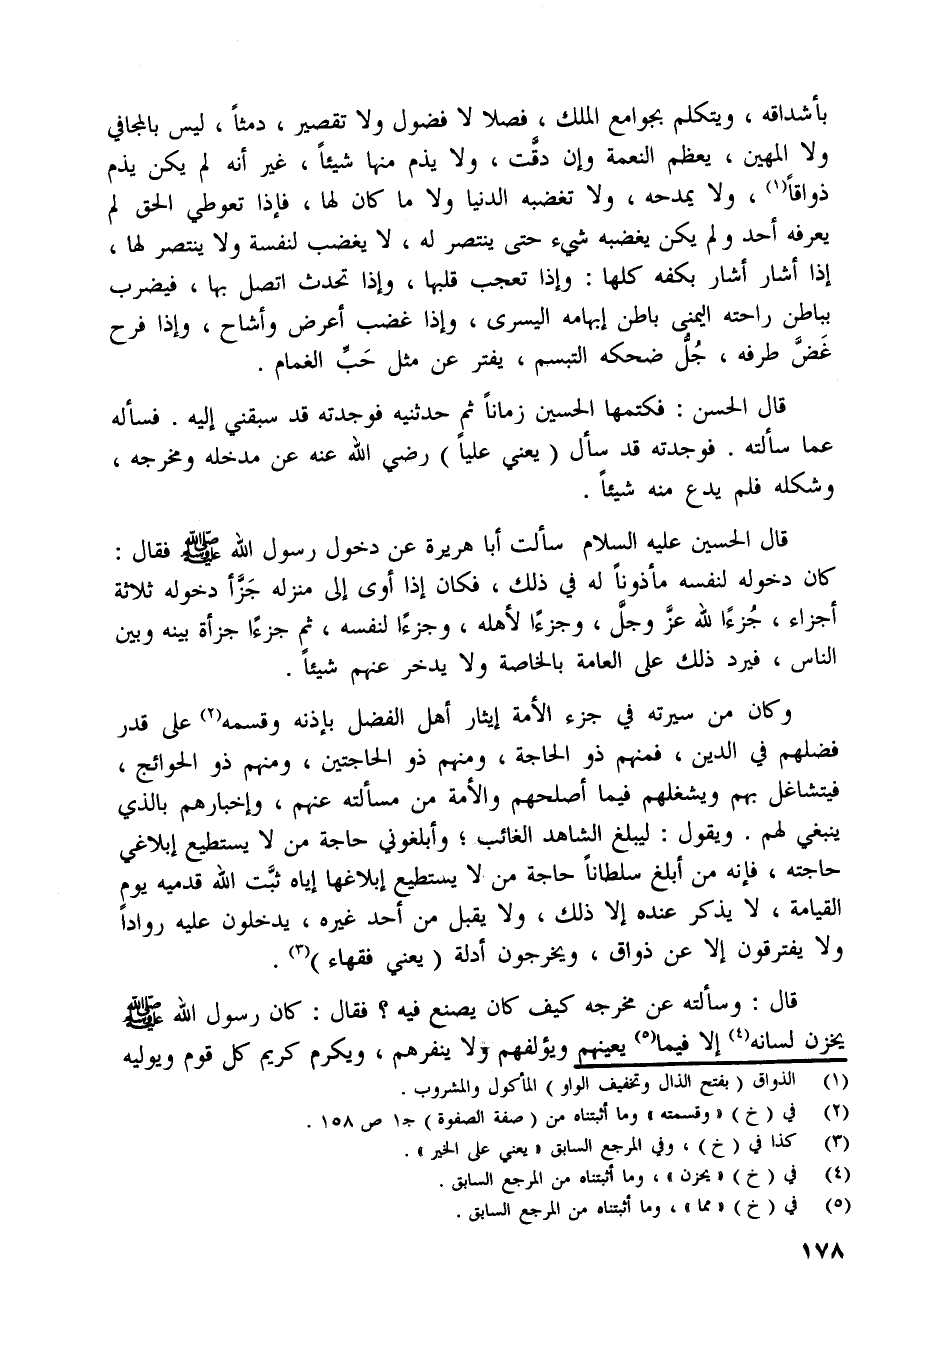 بأشداقه ، ويتكلم بجوامع الملك ، فصلا لا فضول ولا تقصير ، دمثاً ، ليس بالمجافي
ولا المهين ، يعظم النعمة وإن دقَّت ، ولا يذم منها شيئاً ، غير أنه لم يكن يذم
ذواقاً(١) ، ولا يمدحه ، ولا تغضبه الدنيا ولا ما كان لها ، فإذا تعوطي الحق لم
يعرفه أحد ولم يكن يغضبه شيء حتى ينتصر له ، لا يغضب لنفسة ولا ينتصر لها ،
إذا أشار أشار بكفه كلها : وإذا تعجب قلبها ، وإذا تحدث اتصل بها ، فيضرب
بباطن راحته اليمنى باطن إبهامه اليسرى ، وإذا غضب أعرض وأشاح ، وإذا فرح
غَضَّ طرفه ، جُلُّ ضحكه التبسم ، يفتر عن مثل حَبِّ الغمام .
قال الحسن : فكتمها الحسين زماناً ثم حدثنيه فوجدته قد سبقني إليه . فسأله
عما سألته . فوجدته قد سأل ( يعني علياً ) رضي الله عنه عن مدخله ومخرجه ،
وشكله فلم يدع منه شيئاً .
قال الحسين عليه السلام سألت أبا هريرة عن دخول رسول الله ﷺ فقال :
كان دخوله لنفسه مأذوناً له في ذلك ، فكان إذا أوى إلى منزله جَزَّأ دخوله ثلاثة
أجزاء ، جُزءًا لله عزَّ وجلَّ ، وجزءًا لأهله ، وجزءًا لنفسه ، ثم جزءًا جزأة بينه وبين
الناس ، فيرد ذلك على العامة بالخاصة ولا يدخر عنهم شيئاً .
وكان من سيرته في جزء الأمة إيثار أهل الفضل بإذنه وقسمه(٢) على قدر
فضلهم في الدين ، فمنهم ذو الحاجة ، ومنهم ذو الحاجتين ، ومنهم ذو الحوائج ،
فيتشاغل بهم ويشغلهم فيما أصلحهم والأمة من مسألته عنهم ، وإخبارهم بالذي
ينبغي لهم . ويقول : ليبلغ الشاهد الغائب ؛ وأبلغوني حاجة من لا يستطيع إبلاغي
حاجته ، فإنه من أبلغ سلطاناً حاجة من لا يستطيع إبلاغها إياه ثبَّت الله قدميه يوم
القيامة ، لا يذكر عنده إلا ذلك ، ولا يقبل من أحد غيره ، يدخلون عليه رواداً
ولا يفترقون إلا عن ذواق ، ويخرجون أدلة ( يعني فقهاء )(٣) .
قال : وسألته عن مخرجه كيف كان يصنع فيه ؟ فقال : كان رسول الله ﷺ
يخزن لسانه(٤) إلا فيما(٥) يعينهم ويؤلفهم ولا ينفرهم ، ويكرم كريم كل قوم ويوليه
(١) الذواق ( بفتح الذال وتخفيف الواو ) المأكول والمشروب .
(٢) في ( خ ) « وقسمته » وما أثبتناه من ( صفة الصفوة ) جـ١ ص ١٥٨ .
(٣) كذا في ( خ ) ، وفي المرجع السابق « يعني على الخير » .
(٤) في ( خ ) « يحزن » ، وما أثبتناه من المرجع السابق .
(٥) في ( خ ) « مما » ، وما أثبتناه من المرجع السابق .
١٧٨